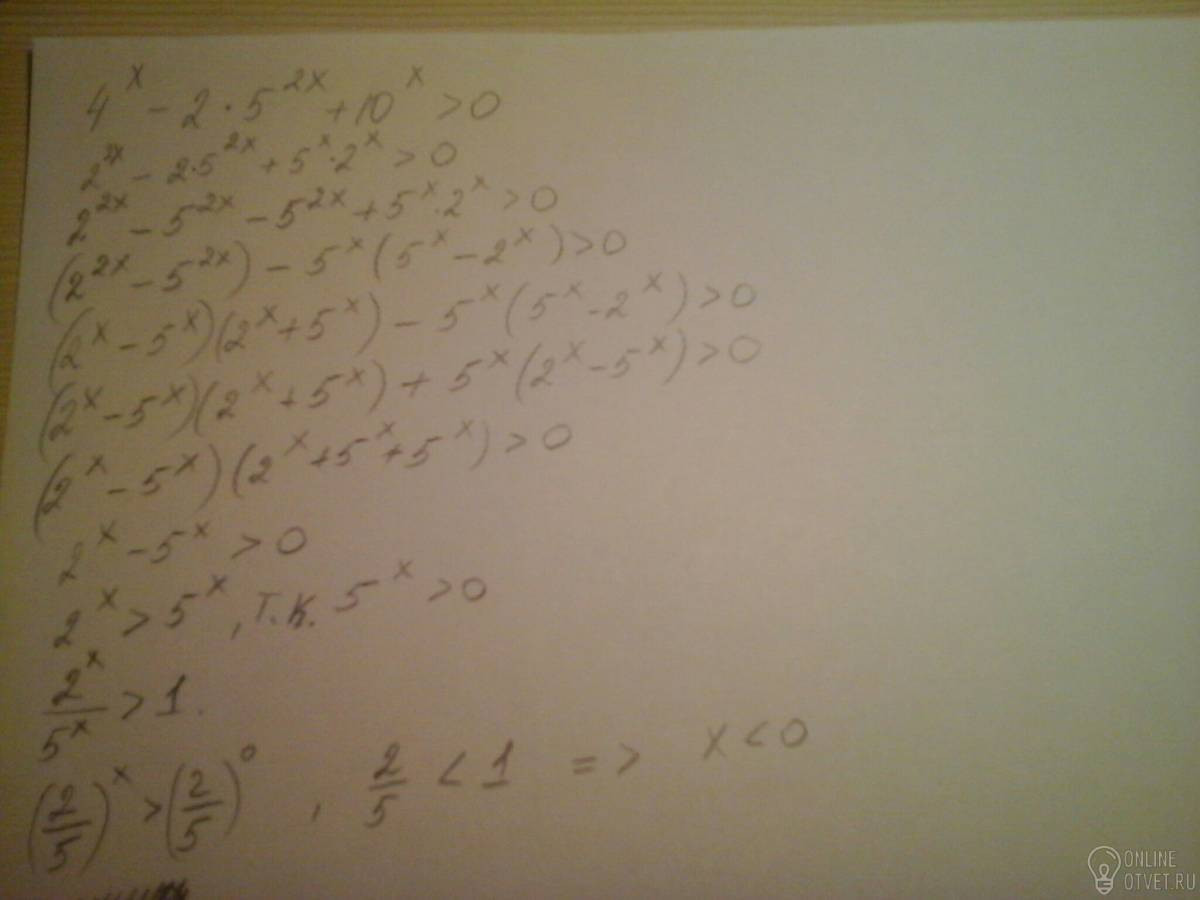 4^x - 2 · 5^2x + 10^x > 0
2^2x - 2·5^2x + 5^x · 2^x > 0
2^2x - 5^2x - 5^2x + 5^x · 2^x > 0
(2^2x - 5^2x) - 5^x (5^x - 2^x) > 0
(2^x - 5^x)(2^x + 5^x) - 5^x (5^x - 2^x) > 0
(2^x - 5^x)(2^x + 5^x) + 5^x (2^x - 5^x) > 0
(2^x - 5^x)(2^x + 5^x + 5^x) > 0
2^x - 5^x > 0
2^x > 5^x, т.к. 5^x > 0
2^x/5^x > 1.
(2/5)^x > (2/5)^0 , 2/5 < 1 => x < 0
ONLINE
OTVET.RU